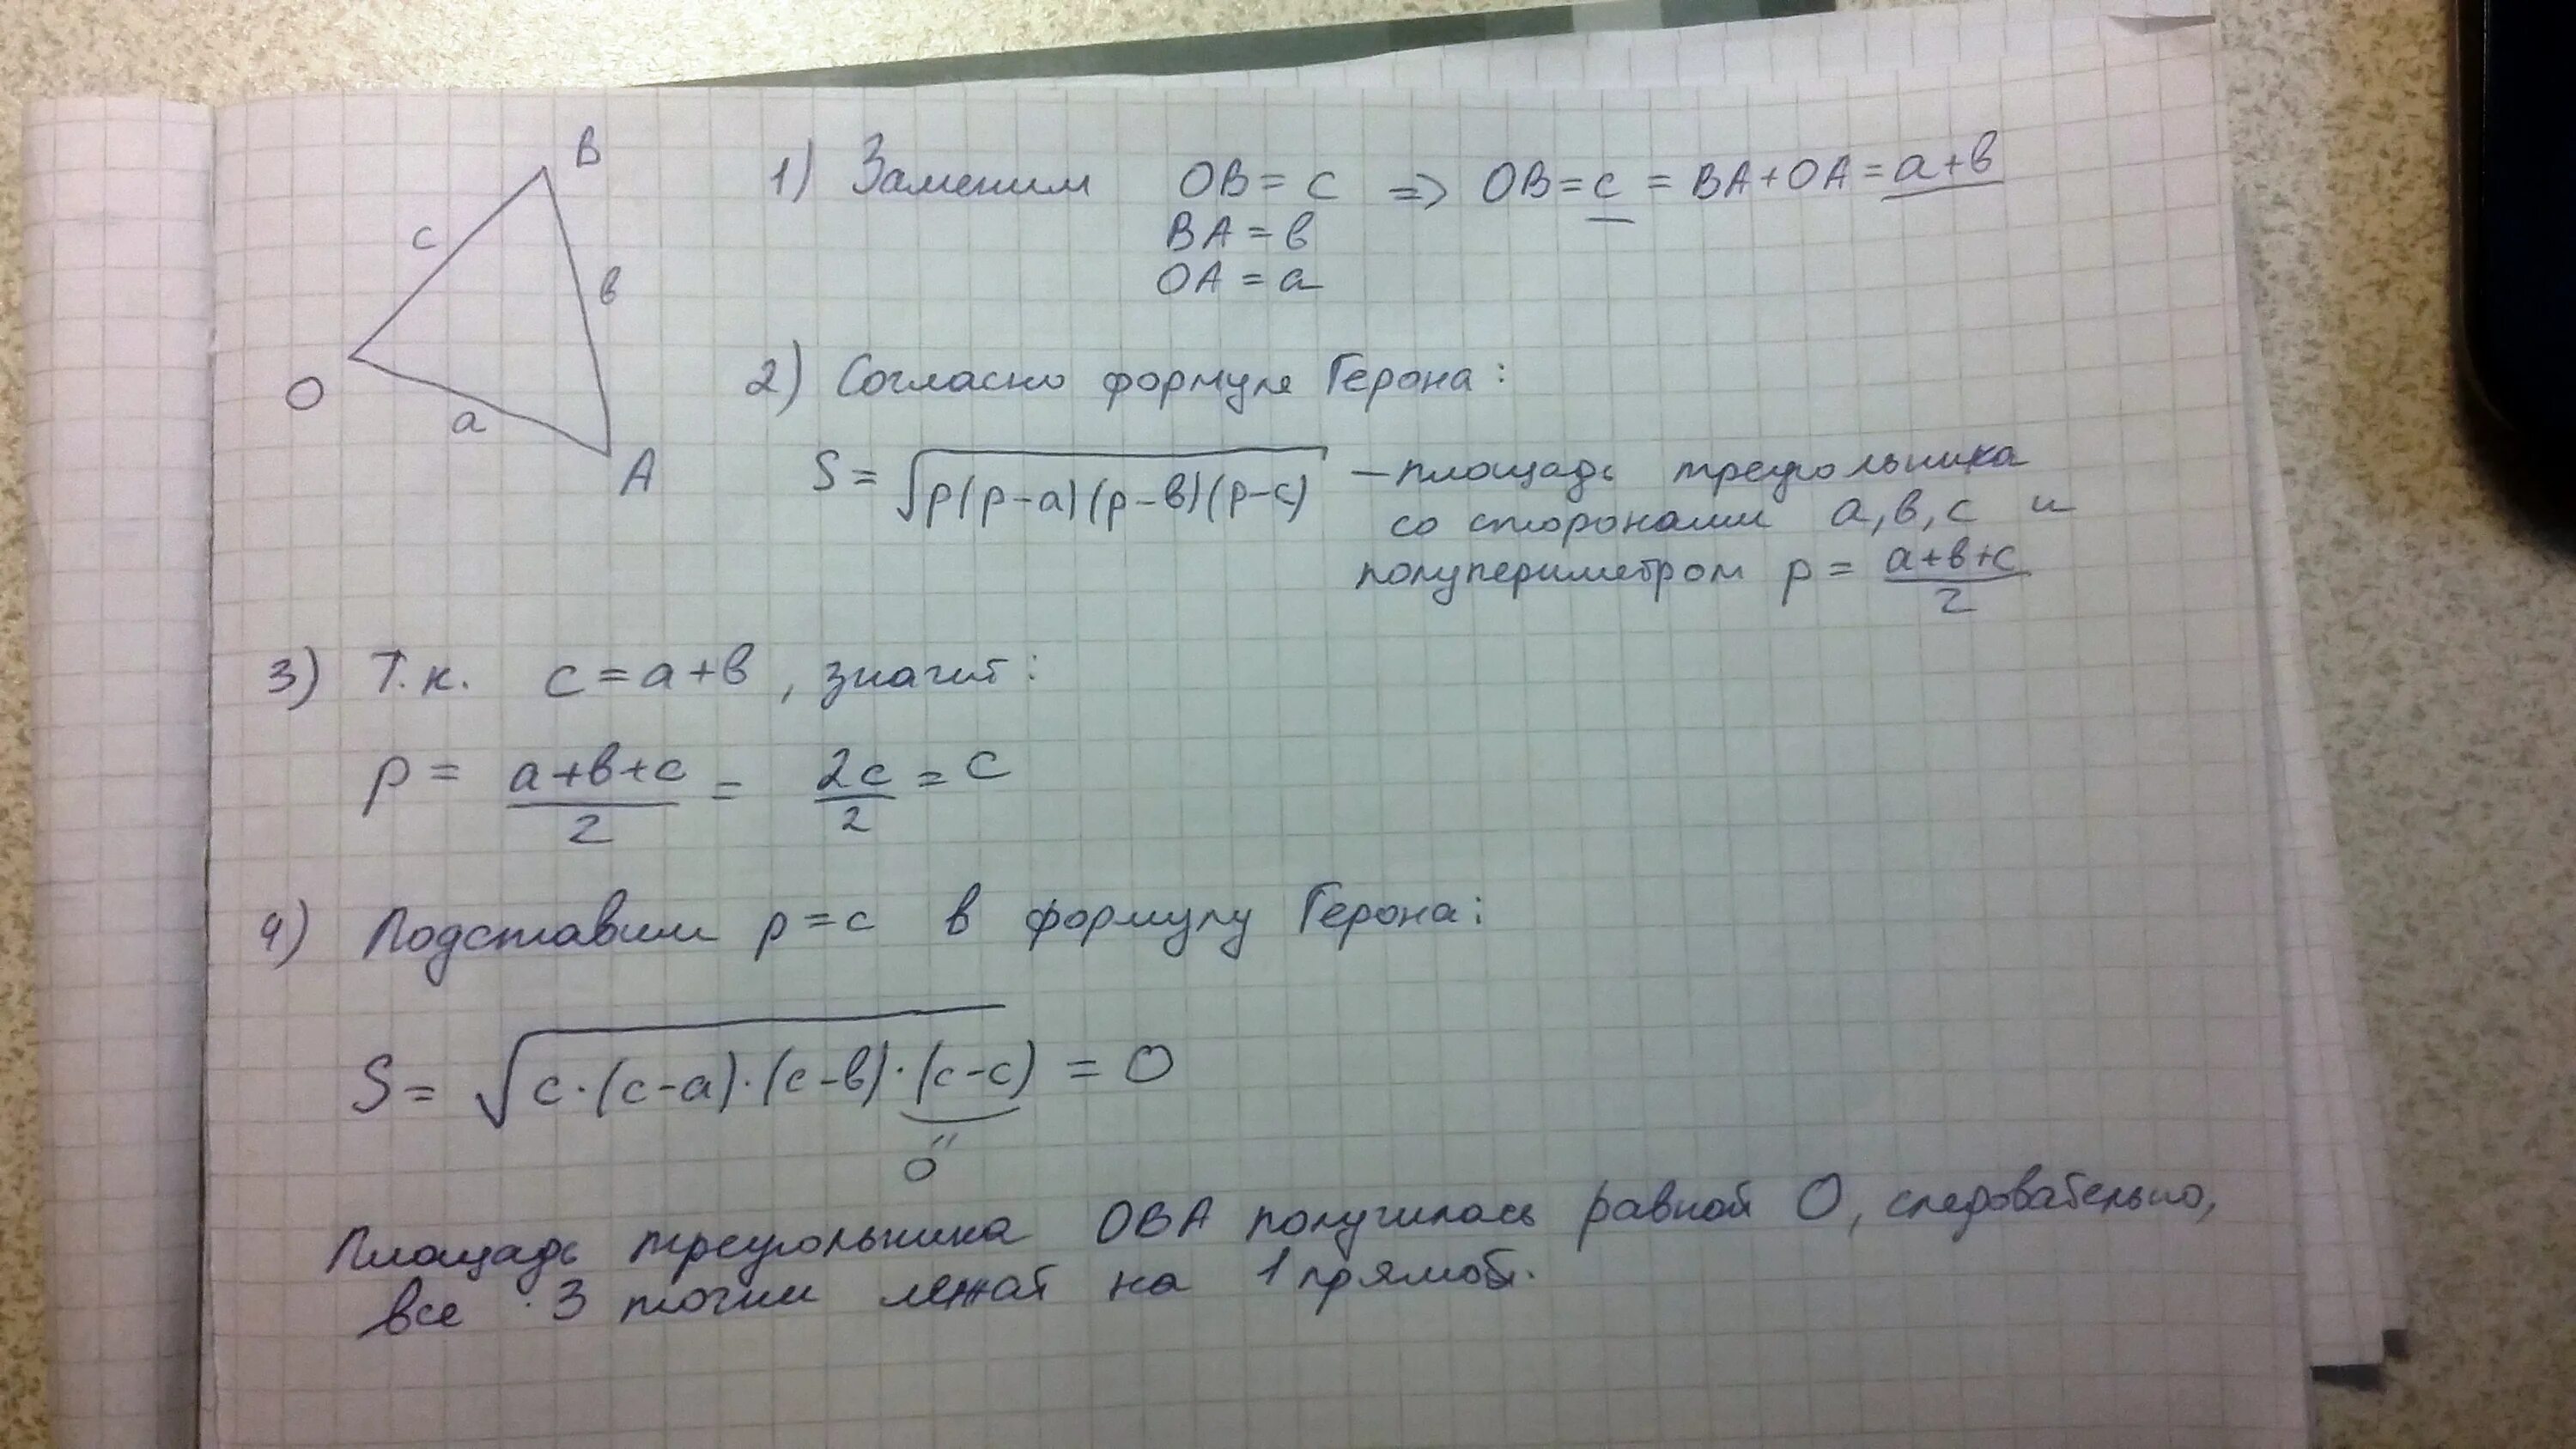 B
c
в
O
a
A
1) Заменим OB = c => OB = c = BA + OA = a + в
BA = в
OA = a
2) Согласно формуле Герона:
S = √p(p-a)(p-в)(p-c) — площадь треугольника
со сторонами a, в, c и
полупериметром p = (a+в+c)/2
3) Т.к. c = a + в, значит:
p = (a+в+c)/2 = 2c/2 = c
4) Подставим p = c в формулу Герона:
S = √c·(c-a)·(c-в)·(c-c) = 0
"
0
Площадь треугольника OBA получилась равной 0, следовательно,
все 3 точки лежат на 1 прямой.